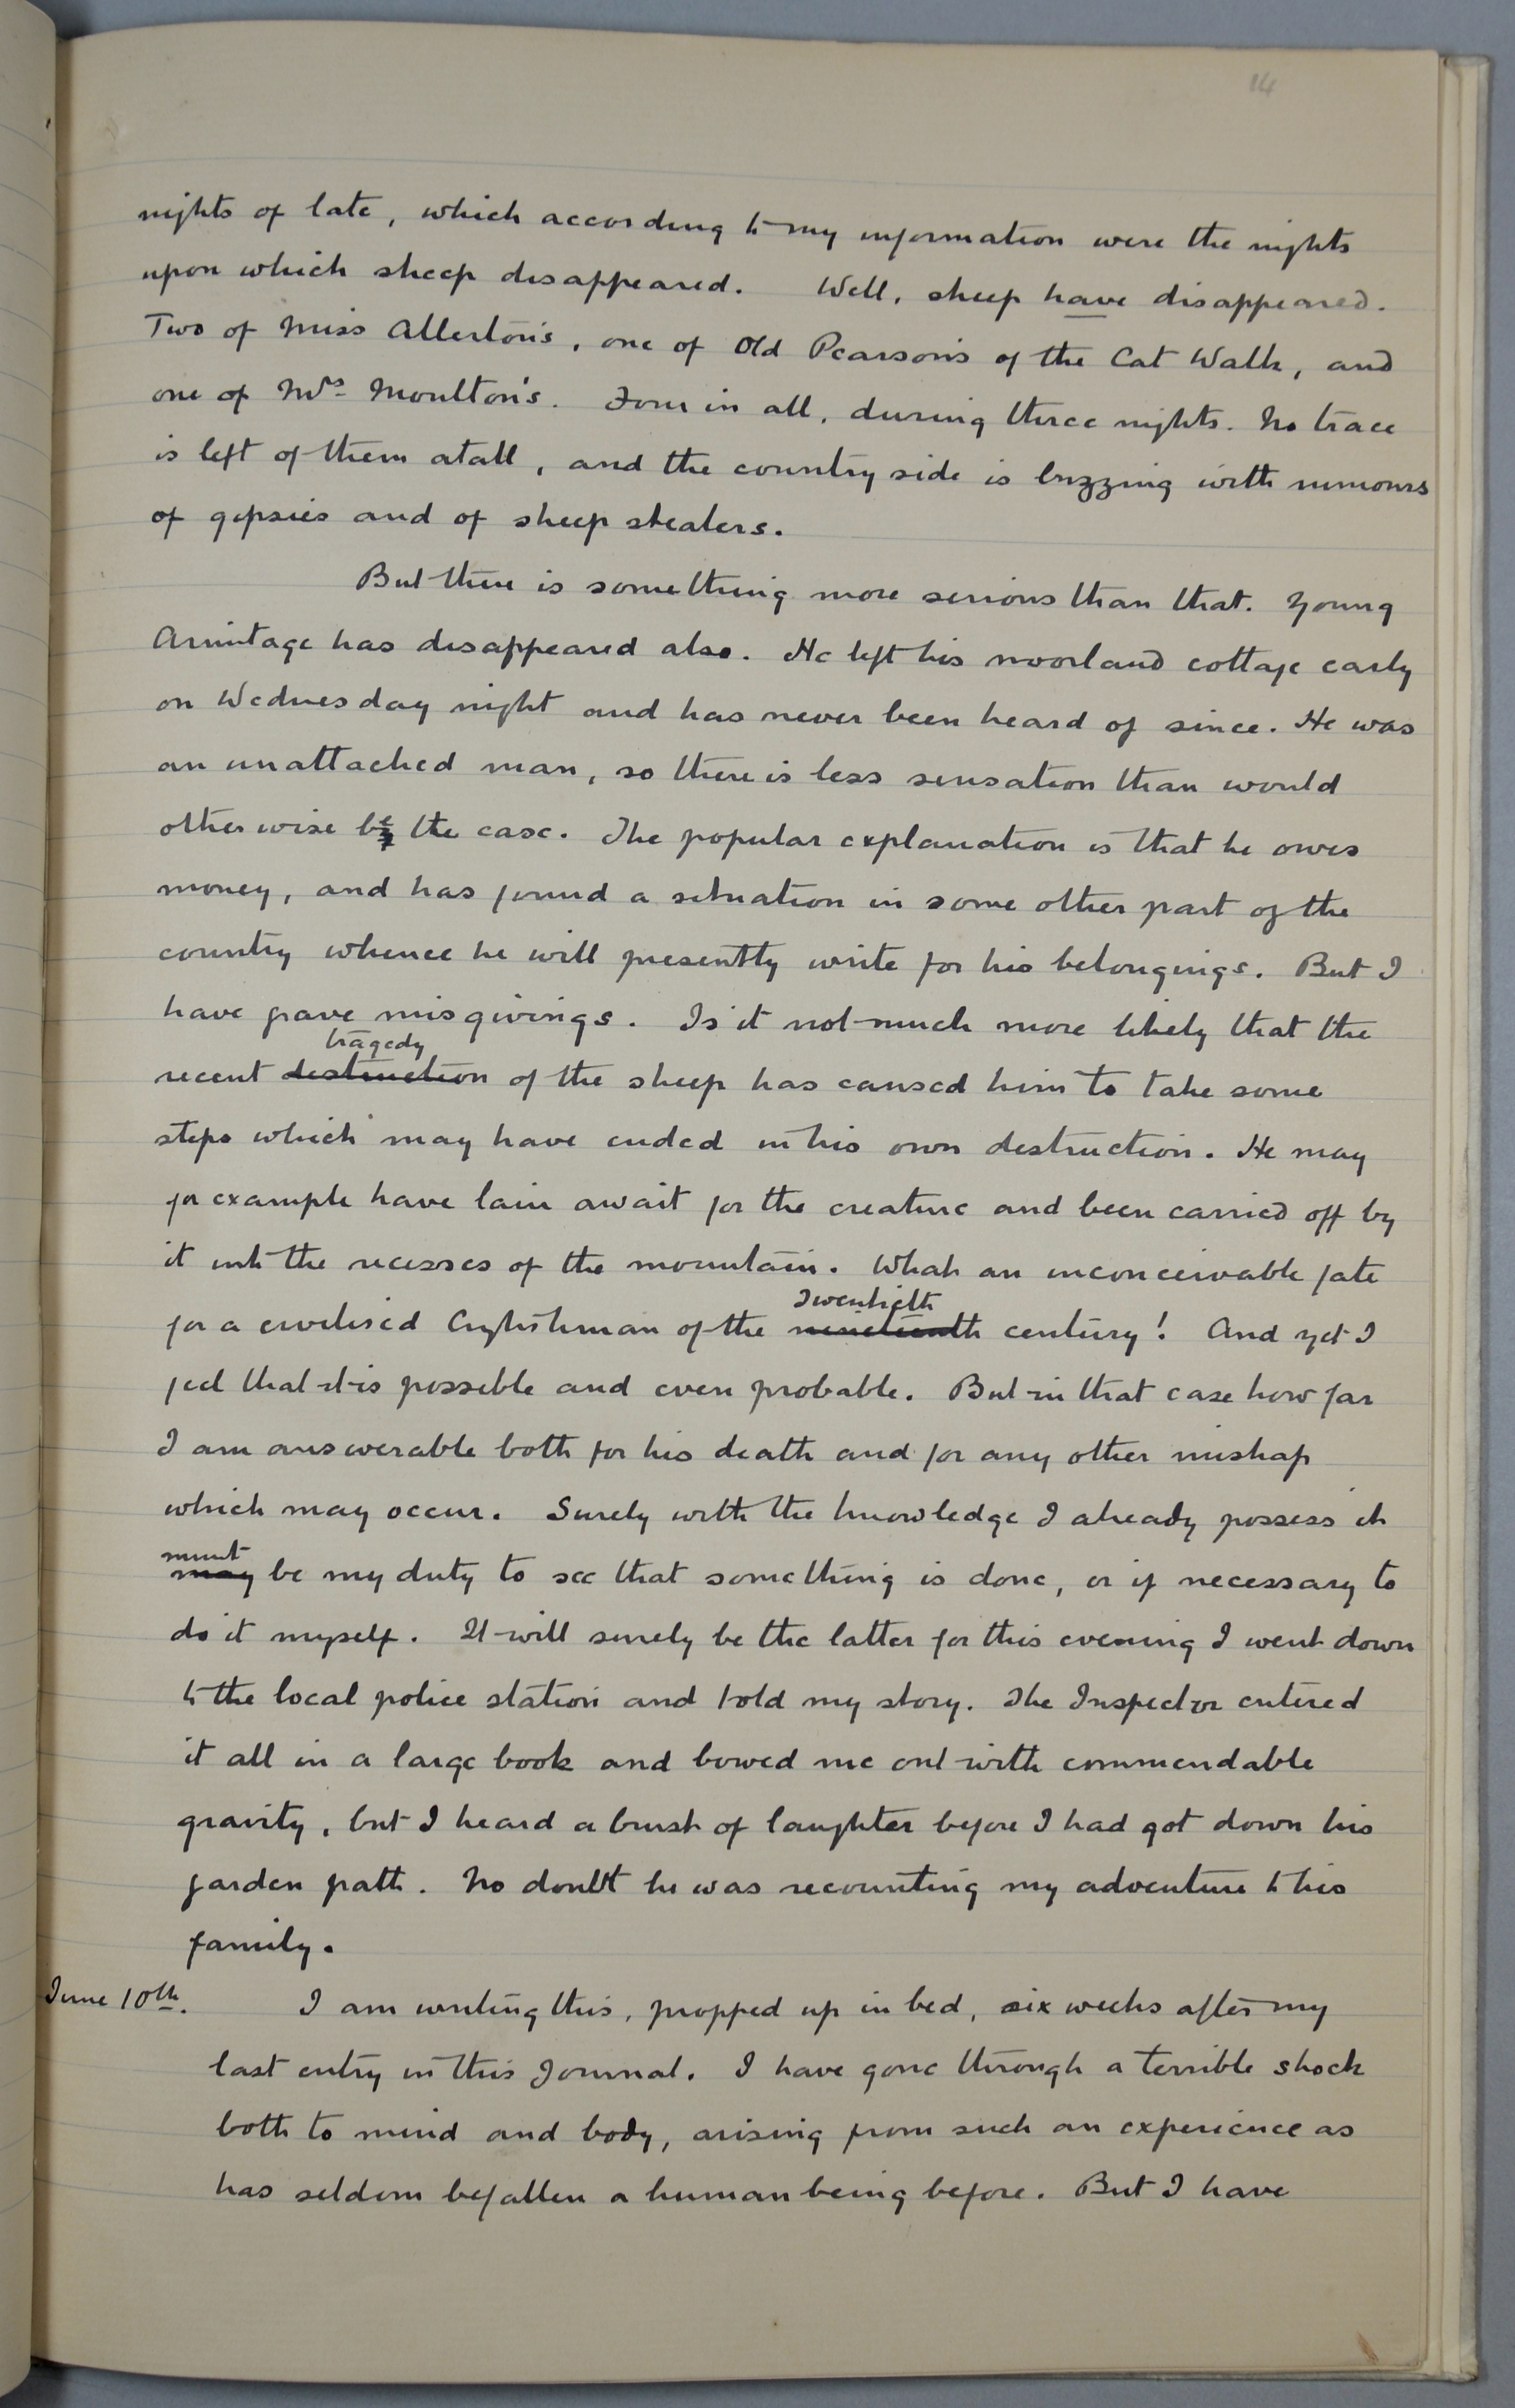 14
nights of late, which according to my information were the nights
upon which sheep disappeared. Well, sheep have disappeared.
Two of Miss Allerton's, one of Old Pearson's of the Cat Walk, and
one of Mrs Moulton's. Four in all, during three nights. No trace
is left of them atall, and the country side is buzzing with rumours
of gipsies and of sheep stealers.
But there is something more serious than that. Young
Armitage has disappeared also. He left his moorland cottage early
on Wednesday night and has never been heard of since. He was
an unattached man, so there is less sensation than would
otherwise be the case. The popular explanation is that he owes
money, and has found a situation in some other part of the
country whence he will presently write for his belongings. But I
have grave misgivings. Is it not much more likely that the
tragedy
recent destruction of the sheep has caused him to take some
steps which may have ended in his own destruction. He may
for example have lain await for the creature and been carried off by
it into the recesses of the mountain. What an inconceivable fate
Twentieth
for a civilised Englishman of the nineteenth century! And yet I
feel that it is possible and even probable. But in that case how far
I am answerable both for his death and for any other mishap
which may occur. Surely with the knowledge I already possess it
must
may be my duty to see that something is done, or if necessary to
do it myself. It will surely be the latter for this evening I went down
to the local police station and told my story. The Inspector entered
it all in a large book and bowed me out with commendable
gravity, but I heard a burst of laughter before I had got down his
garden path. No doubt he was recounting my adventure to his
family.
June 10th. I am writing this, propped up in bed, six weeks after my
last entry in this Journal. I have gone through a terrible shock
both to mind and body, arising from such an experience as
has seldom befallen a human being before. But I have